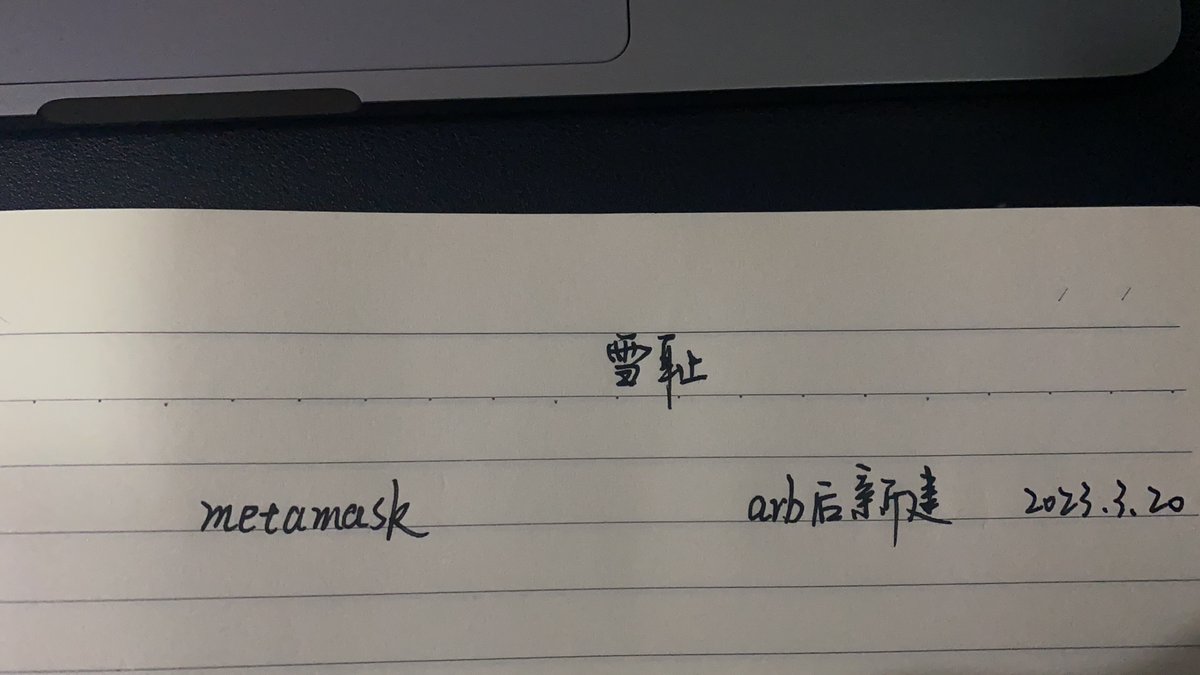 雪耻
metamask arb后新建 2023.3.20